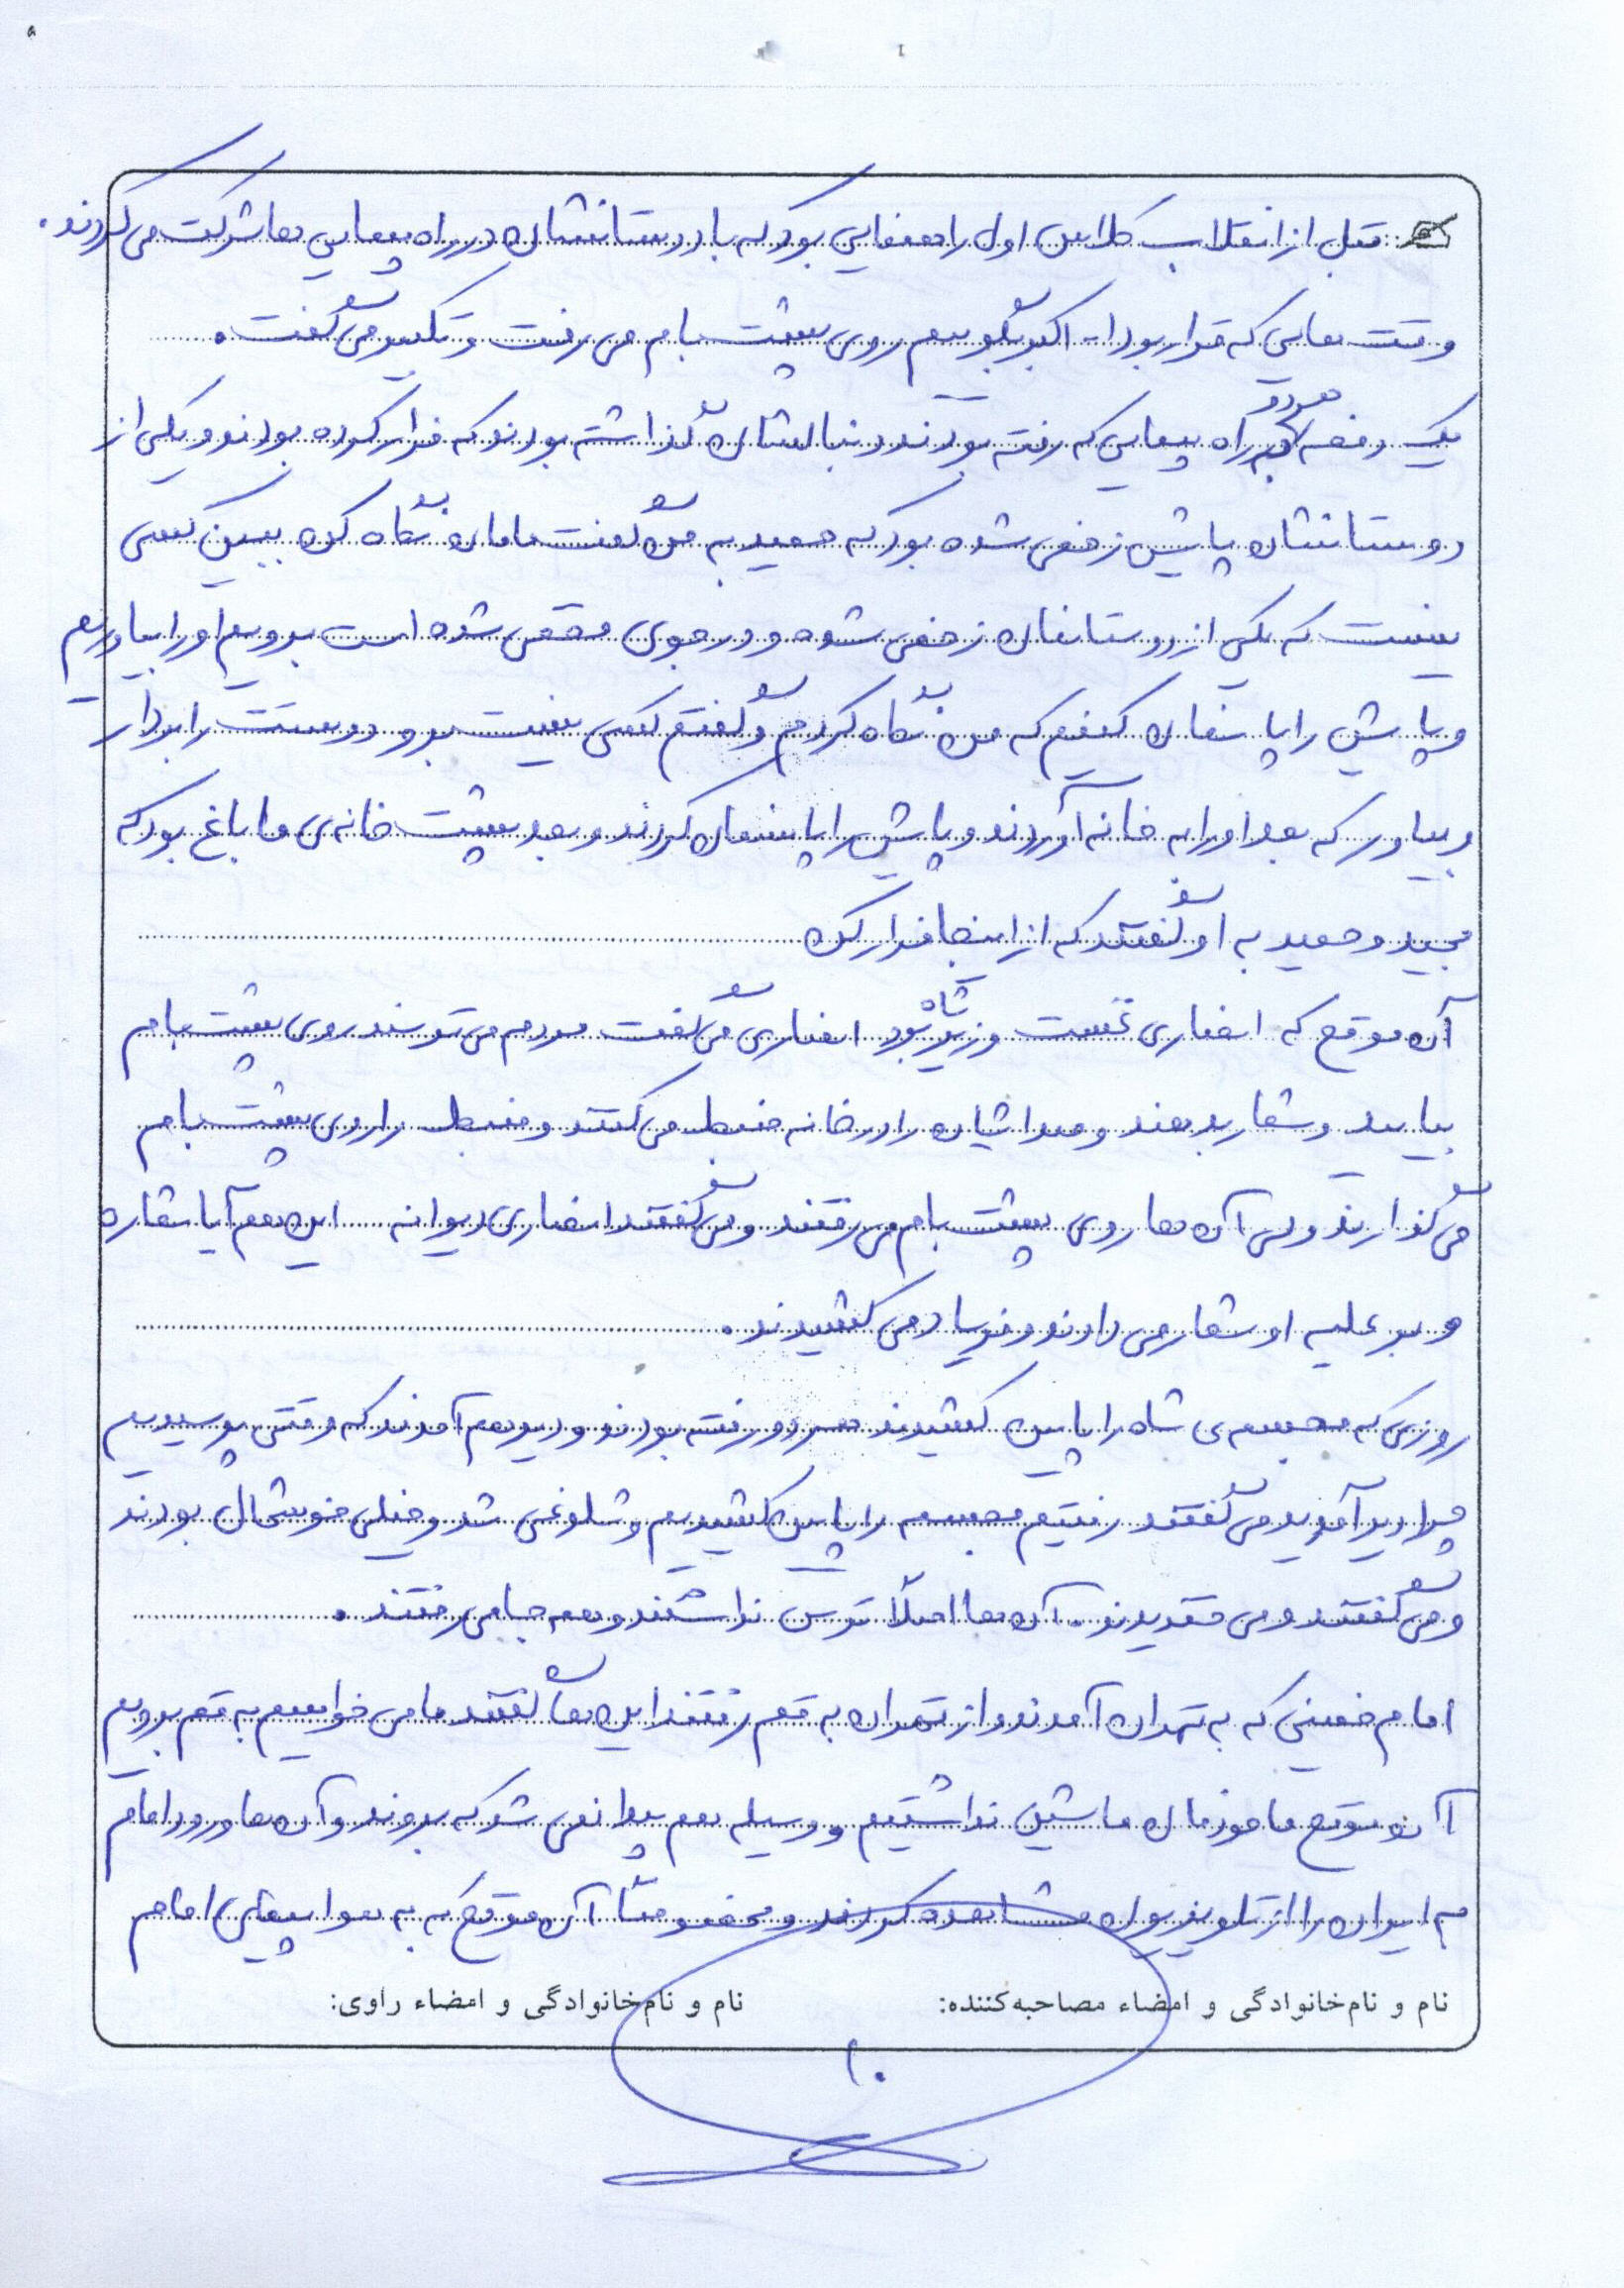 قبل از انقلاب کلاس اول راهنمایی بود که با دوستانشان در راه پیمایی ها شرکت می کردند.
وقت هایی که قرار بود ا.. اکبر بگوییم روی پشت بام می رفت و تکبیر می گفت.
یک دفعه که هر دو در راه پیمایی که رفته بودند دنبالشان گذاشته بودند که فرار کرده بودند و یکی از
دوستانشان پایش زخمی شده بود که حمید به من گفت مامان نگاه کن ببین کسی
نیست که یکی از دوستانمان زخمی شده و در جوی مخفی شده است برویم او را بیاوریم
و پایش را پانسمان کنیم که من نگاه کردم و گفتم کسی نیست برو دوستت را بردار
و بیاور که بعد او را به خانه آوردند و پایش را پانسمان کردند و بعد پشت خانه ی ما باغ بود که
مجید و حمید به او گفتند که از اینجا فرار کن
آن موقع که انصاری نخست وزیر شاه بود انصاری می گفت مردم می ترسند روی پشت بام
بیایید و شعار بدهند و صداشان را در خانه ضبط می کنند و ضبط را روی پشت بام
می گذارند ولی آن ها روی پشت بام می رفتند و می گفتند انصاری دیوانه این هم آیا شماره
و بر علیه او شعار می دادند و فریاد می کشیدند.
روزی که مجسمه ی شاه را پایین کشیدند هر دو رفته بودند و دیر هم آمدند که وقتی پرسیدیم
چرا دیر آمدید می گفتند رفتیم مجسمه را پایین کشیدیم و شلوغی شد و خیلی خوشحال بودند
و می گفتند و می خندیدند. آن ها اصلاً ترس نداشتند و همه جا می رفتند.
امام خمینی که به تهران آمدند و از تهران به قم رفتند این ها گفتند ما می خواهیم به قم برویم
آن موقع ما خودمان ماشین نداشتیم و وسیله هم پیدا نمی شد که بروند و آن ها ورود امام
به ایران را از تلویزیون مشاهده کردند و مخصوصاً آن موقع که به هواپیمای امام
نام و نام خانوادگی و امضاء مصاحبه کننده: نام و نام خانوادگی و امضاء راوی:
۱۰